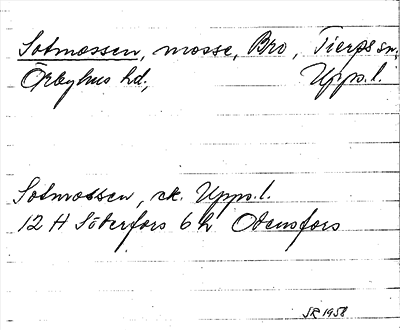 Sotmossen, mosse, Bro, Tierps sn,
Örbyhus hd, Upps.l.
Sotmossen, ek. Upps.l.
12 H Söderfors 6 h Odensfors
SR 1958